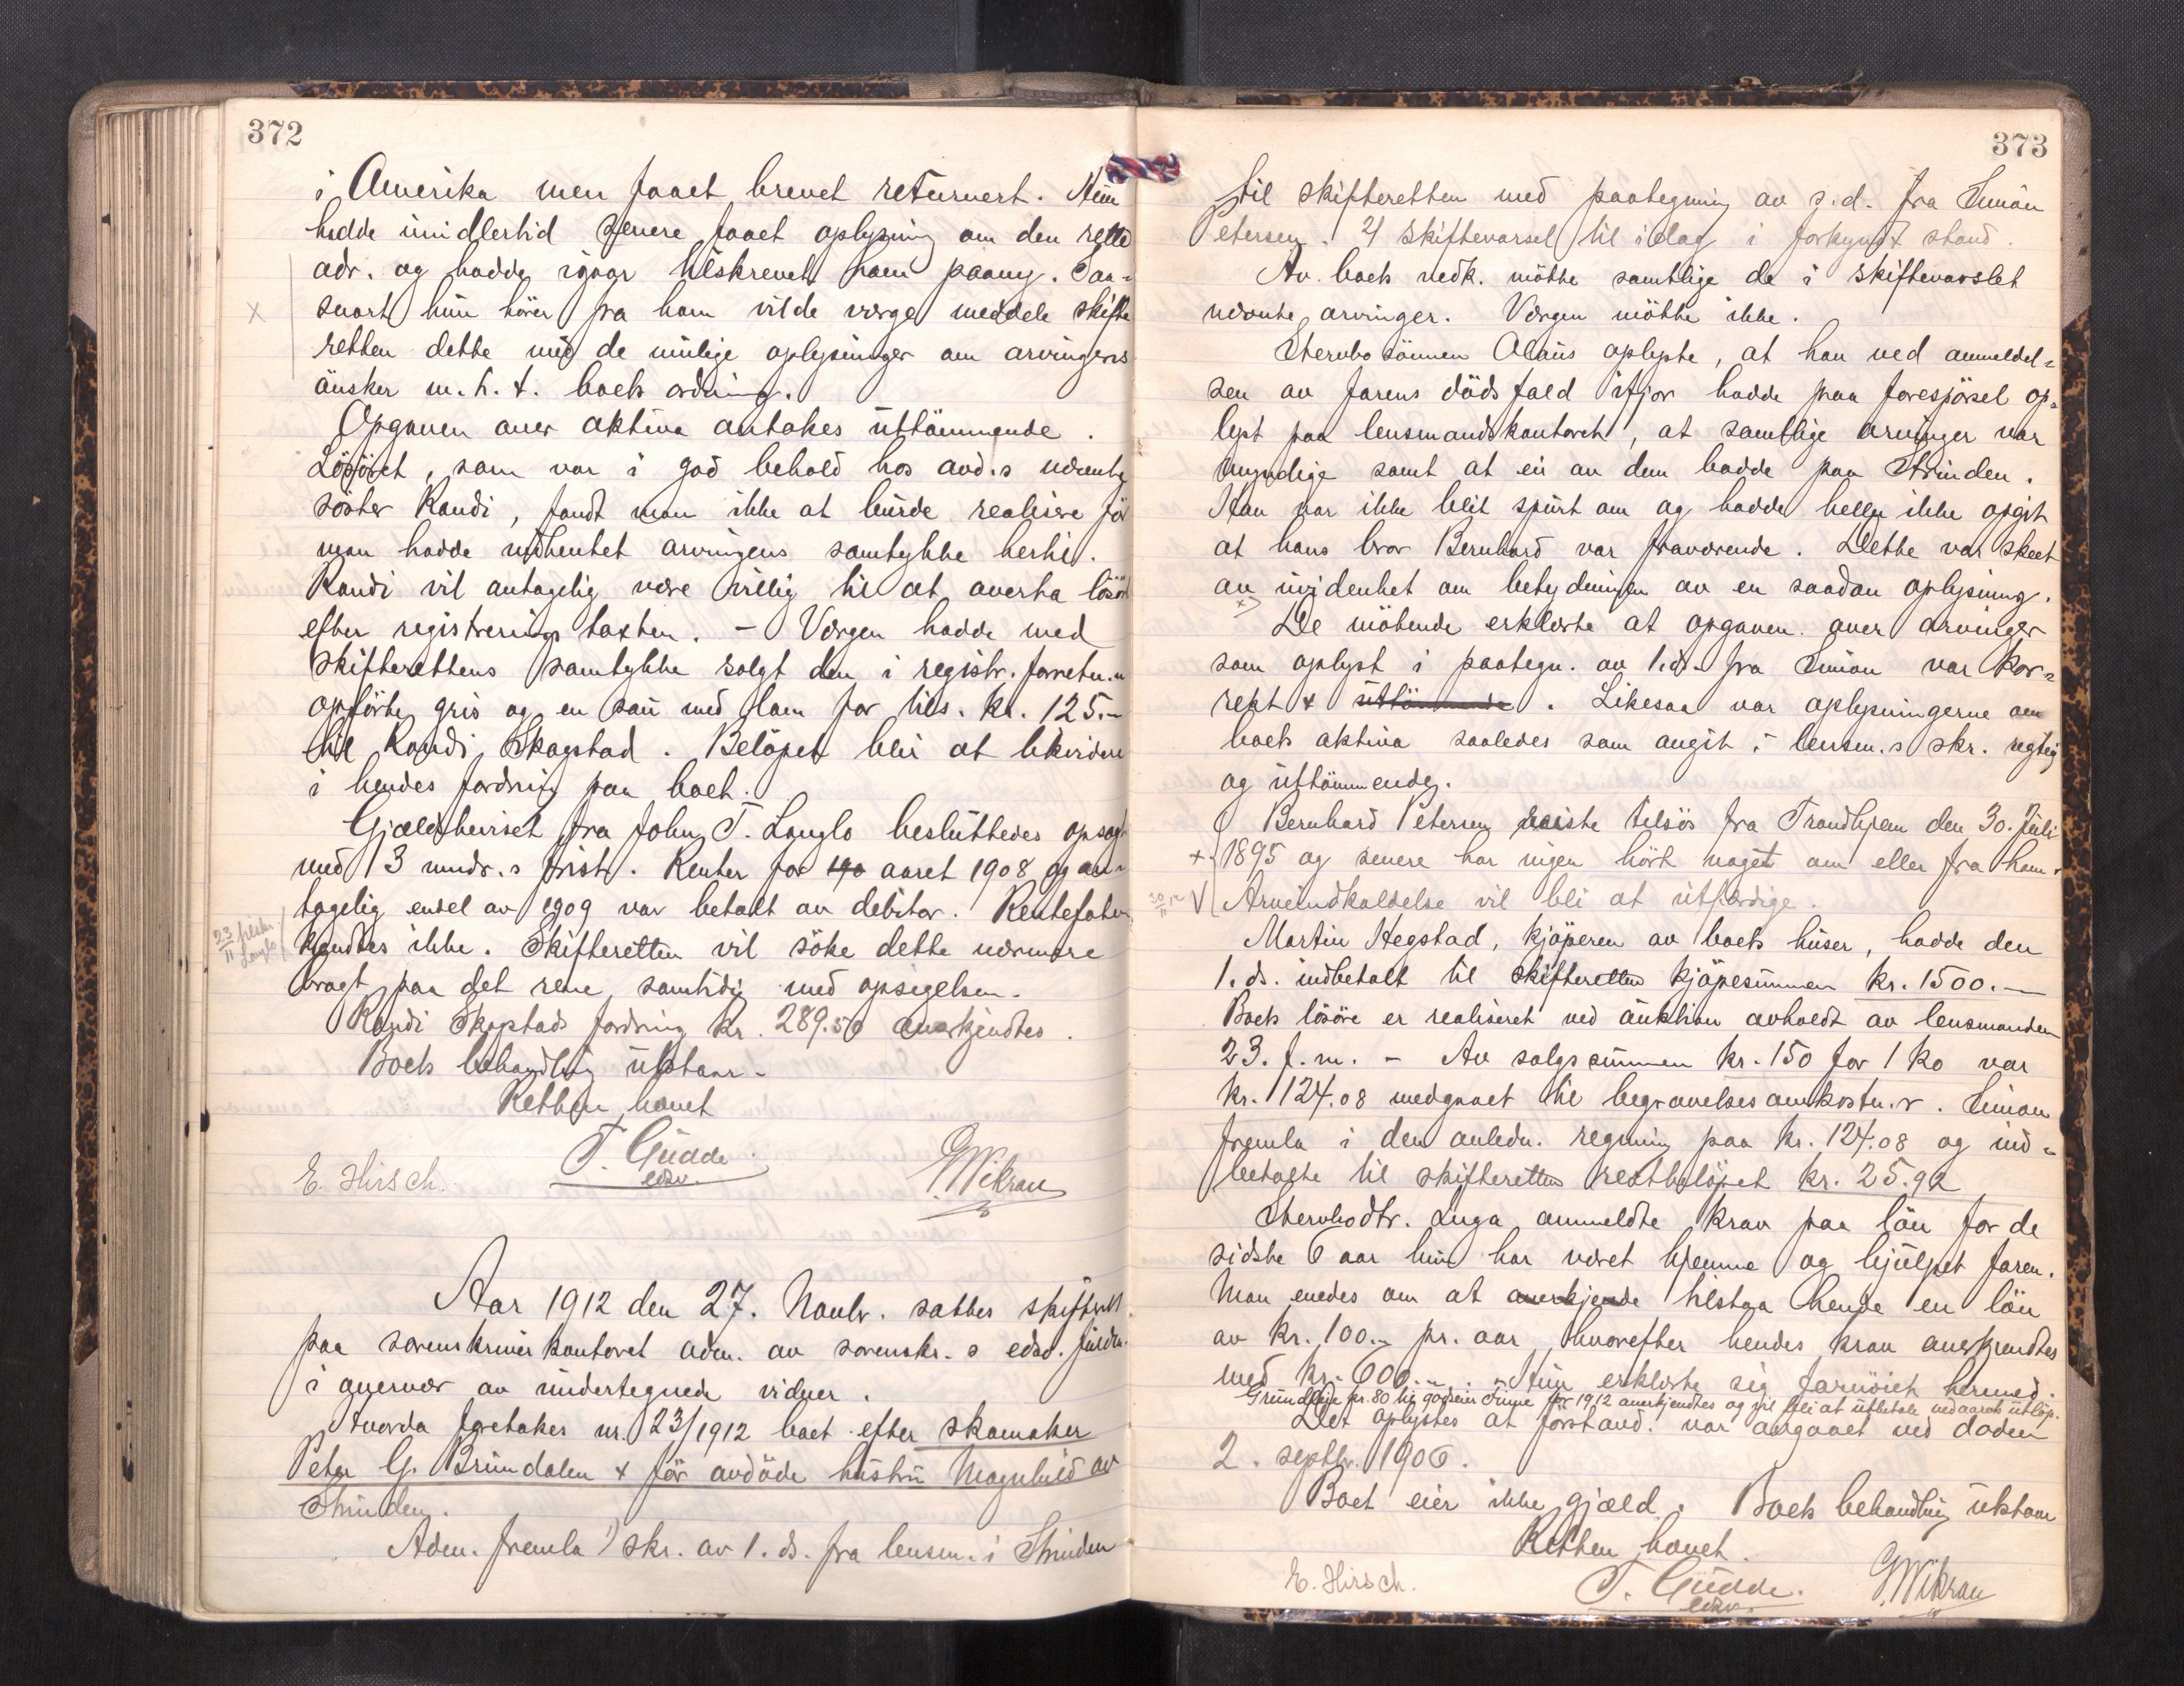 372
i Amerika men faaet brevet returnert. Hun
hadde imidlertid senere faaet oplysning om den rette
adr. og hadde igaar tilskrevet ham paany. Saa-
x snart hun hörer fra ham vilde værgen meddele skifte
retten dette med de mulige oplysninger om arvingens
önsker m. h. t. boets ordning.
Opgaven over aktiva antokes uttömmende.
Lösöret, som var i god behold hos avd.s nævnte
söster Randi, fandt man ikke at burde realisere för
man hadde indhentet arvingens samtykke hertil.
Randi vil antagelig være villig til at overta lösöret
efter registreringstaxten. - Værgen hadde med
skifterettens samtykke solgt den i registr. forretn.n
opförte gris og en sau med lam for tils. kr. 125.-
til Randi Skogstad. Belöpet blir at likvidere
i hendes fordring paa boet.
Gjældsbeviset fra John T. Langlo besluttedes opsagt
med 3 mndr.s frist. Renter for 190 aaret 1908 og an-
tagelig endel av 1909 var betalt av debitor. Rentefoten
23/11 Langlo
kjendtes ikke. Skifteretten vil söke dette nærmere
bragt paa det rene samtidig med opsigelsen.
Randi Skogstads fordring kr. 289.50 anerkjendtes.
Boets behandling utstaar.
Retten hævet
E. Hirsch. T. Gudde edsv. G. Wikran
Aar 1912 den 27. Novbr. sattes skifterett
paa sorenskriverkontoret adm. av sorenskr.s edsv. fuldm.
i overvær av undertegnede vidner.
Hvorda foretokes nr. 23/1912 boet efter skomaker
Peter G. Brundalen & för avdöde hustru Magnhild av
Strinden.
Adm. fremla 1) skr. av 1. ds. fra lensm. i Strinden
373
til skifteretten med paategning av s.d. fra Simon
Petersen. 2) skiftevarsel til idag i forkyndt stand.
Av boets vedk. mötte samtlige de i skiftevarslet
nævnte arvinger. Værgen mötte ikke.
Stervbosönnen Olaus oplyste, at han ved anmeldel-
sen av farens dödsfald ifjor hadde paa forespörsel op-
lyst paa lensmandskontoret, at samtlige arvinger var
myndige samt at en av dem bodde paa Strinden.
Han var ikke blit spurt om og hadde heller ikke opgit
at hans bror Bernhard var fraværende. Dette var skeet
av uvidenhet om betydningen av en saadan oplysning.
x) De mötende erklærte at opgaven over arvinger
som oplyst i paategn. av 1. ds. fra Simon var kor-
rekt & uttömmende. Likesaa var oplysningerne om
boets aktiva saaledes som angit i lensm.s skr. rigtig
og uttömmende.
Bernhard Petersen reiste tilsjös fra Trondhjem den 30. Juli
x 1895 og senere har ingen hört noget om eller fra ham.
30/11 12 V Arveindkaldelse vil bli at utfærdige.
Martin Hegstad, kjöperen av boets huser, hadde den
1. ds. indbetalt til skifteretten kjöpesummen kr. 1500.-
Boets lösöre er realiseret ved auktion avholdt av lensmanden
23. f. m. - Av salgssummen kr. 150 for 1 ko var
kr. 124.08 medgaaet til begravelsesomkostn.r. Simon
fremla i den anledn. regning paa kr. 124.08 og ind-
betalte til skifteretten restbelöpet kr. 25.92
Stervbodtr. Inga anmeldte krav paa lön for de
sidste 6 aar hun har været hjemme og hjulpet faren.
Man enedes om at anerkjende tilstaa hende en lön
av kr. 100.- pr. aar, hvorefter hendes krav anerkjendtes
med kr. 600.-. Hun erklærte sig fornöiet hermed.
Grundleie kr. 80 til godseier for 1912 anerkjendtes og vil bli at utbetale ved aarets utlöp.
Det oplystes at förstavd. var avgaaet ved döden
2. septbr. 1906.
Boet eier ikke gjæld. Boets behandling utstaar
Retten hævet.
E. Hirsch. T. Gudde. edsv. G. Wikran